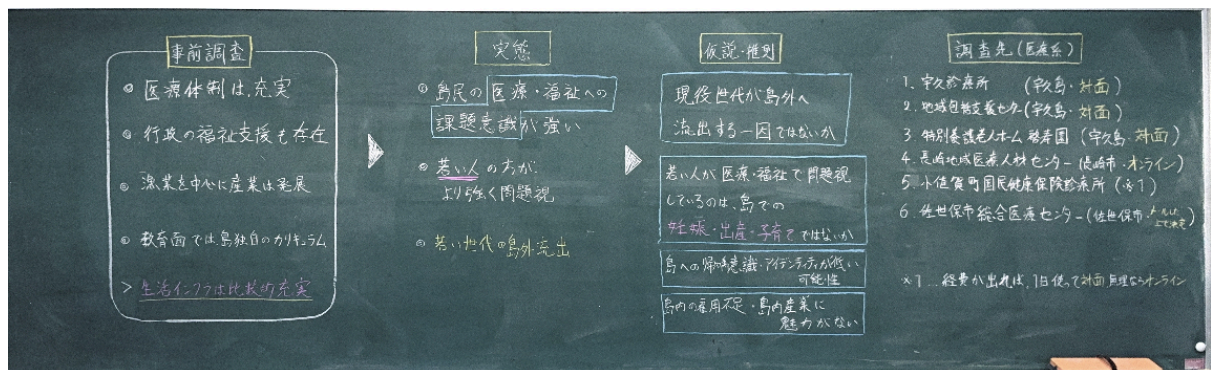 事前調査
◎ 医療体制は充実
◎ 行政の福祉支援も存在
◎ 漁業を中心に産業は発展
◎ 教育面では島独自のカリキュラム
> 生活インフラは比較的充実
実態
◎ 島民の医療・福祉への
課題意識が強い
◎ 若い人の方が
より強く問題視
◎ 若い世代の島外流出
仮説・推測
現役世代が島外へ
流出する一因ではないか
若い人が医療・福祉で問題視
しているのは、島での
妊娠・出産・子育てではないか
島への帰属意識・アイデンティティが低い
可能性
島内の雇用不足・島内産業に
魅力がない
調査先(医療系)
1. 宇久診療所 (宇久島・対面)
2. 地域包括支援センター(宇久島・対面)
3. 特別養護老人ホーム (宇久島・対面)
4. 長崎地域医療人材センター(長崎市・オンライン)
5. 小値賀町国民健康保険診療所 (※1)
6. 佐世保市総合医療センター(佐世保市・
※1... 経費が出れば、1日使って対面 無理ならオンライン